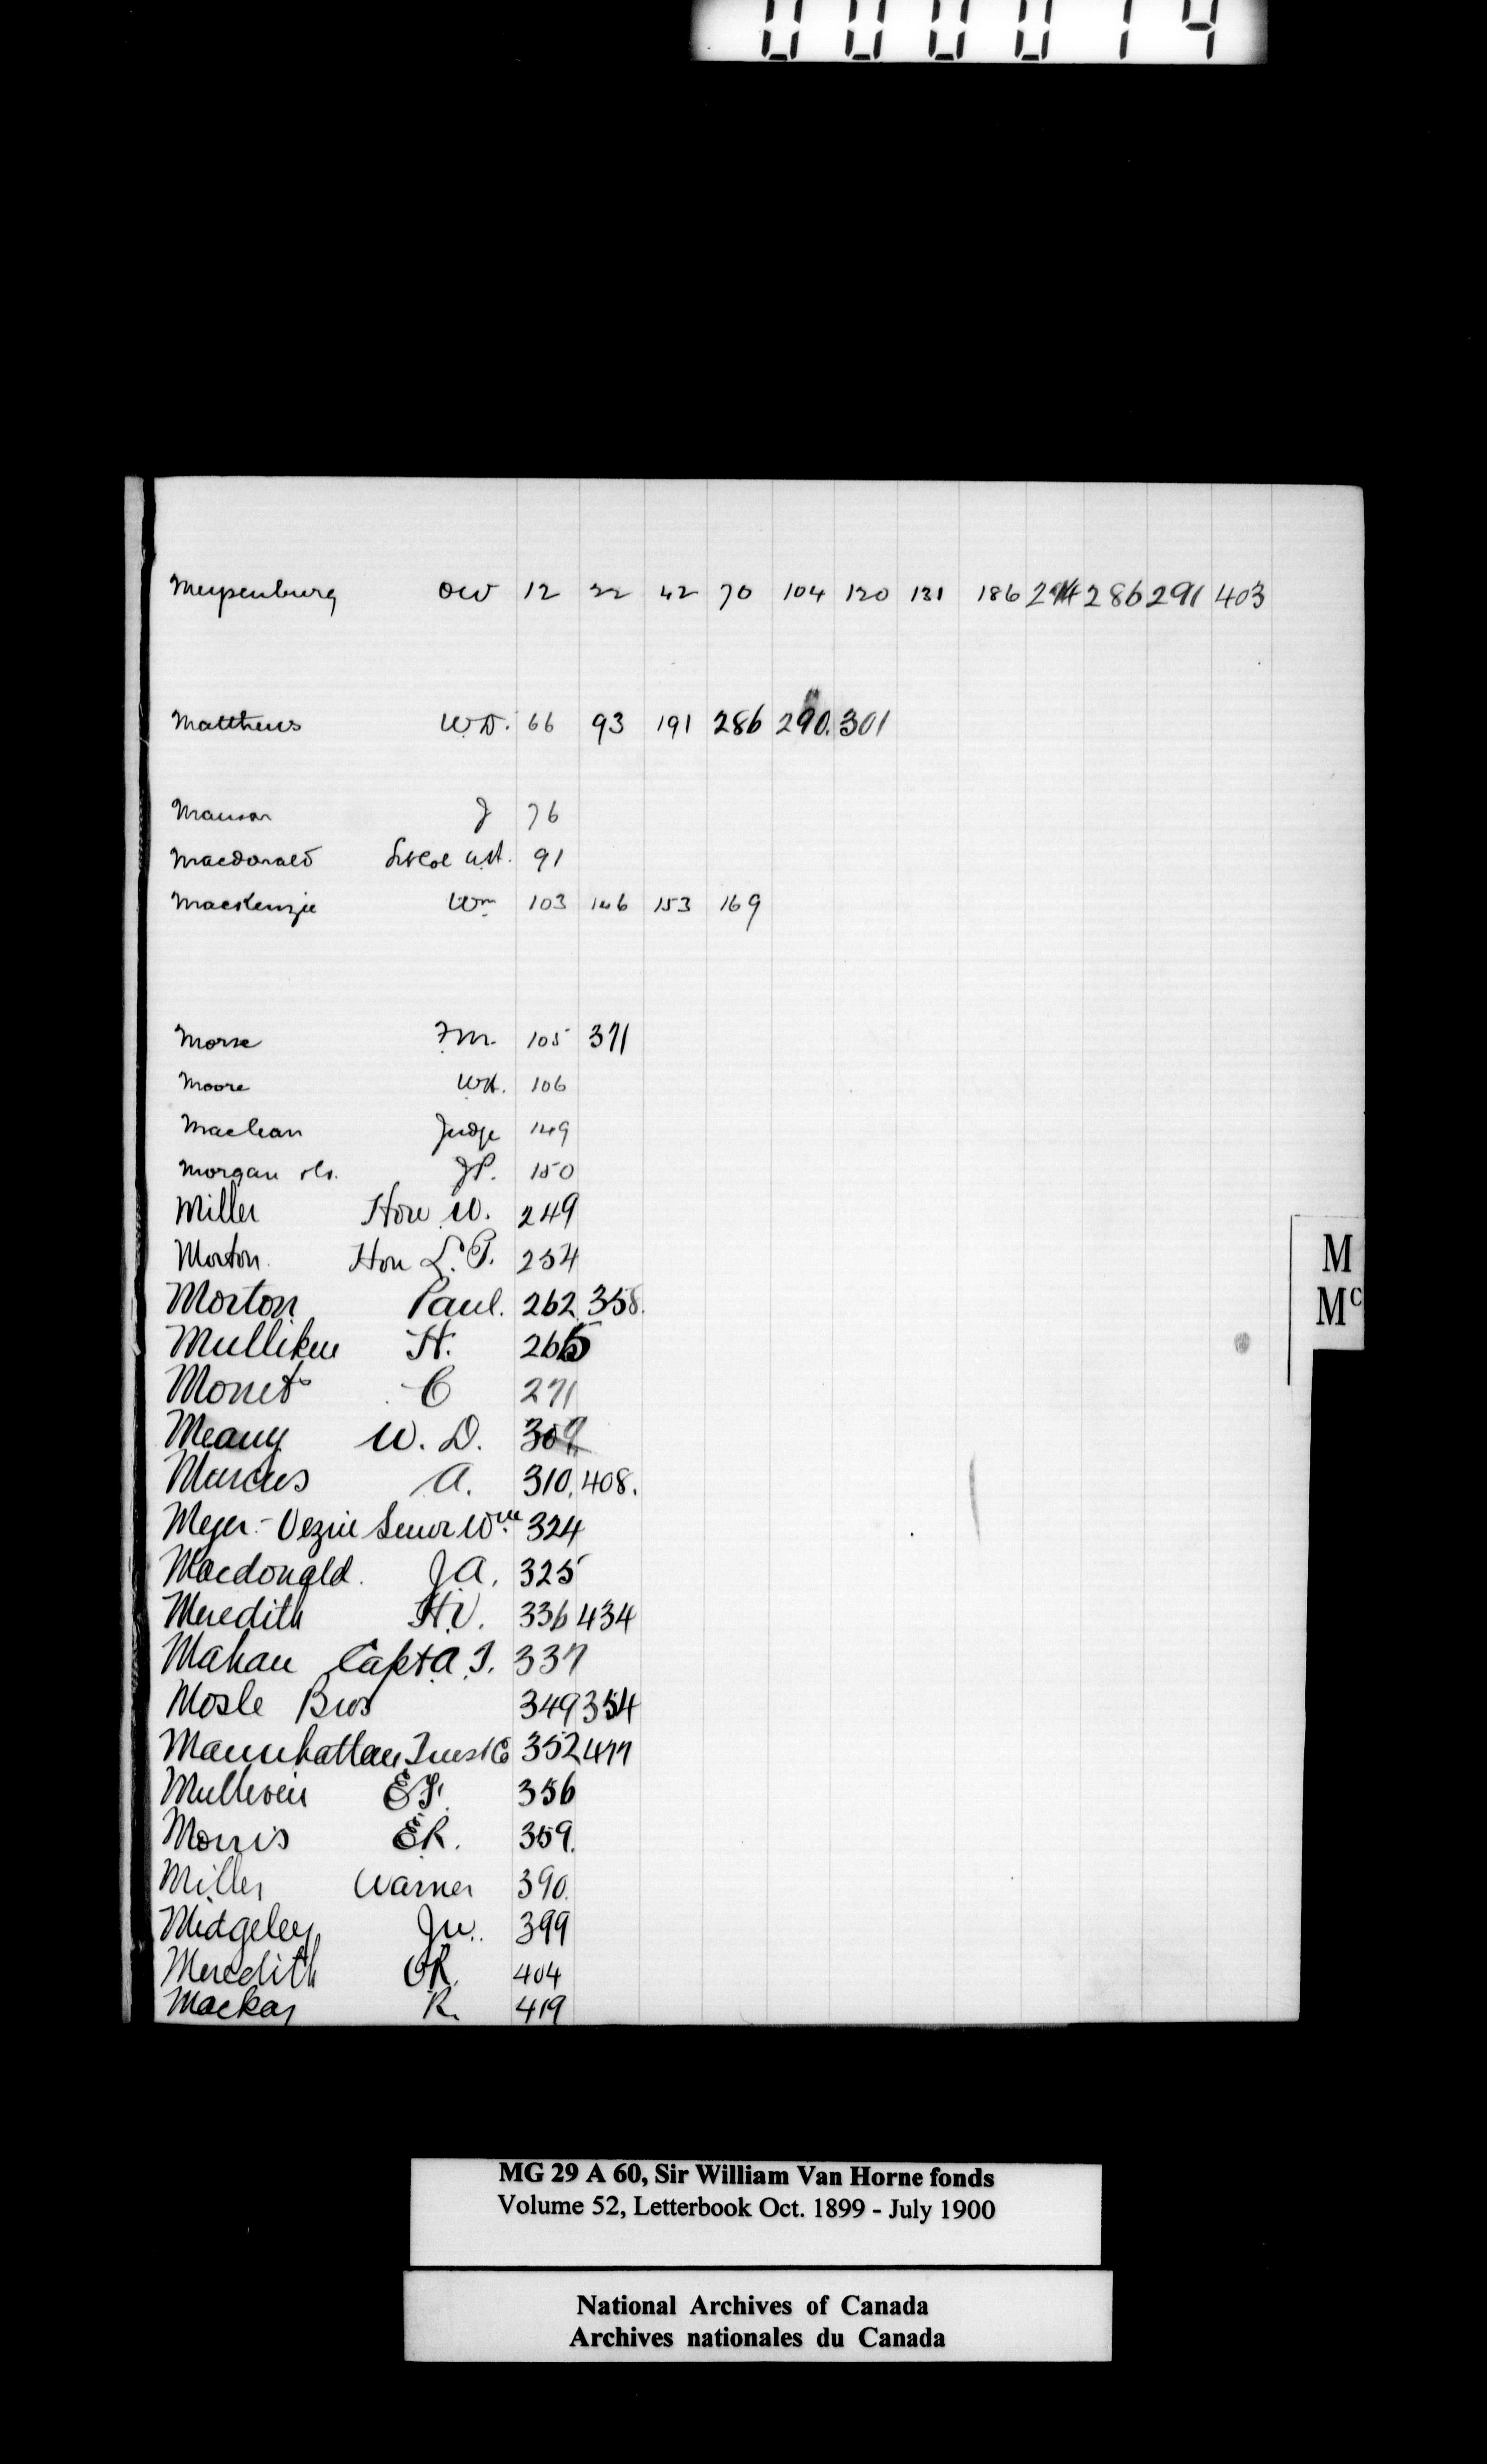 000014
Meysenburg OW 12 22 42 70 104 120 131 186 286 291 403
Matthews W.D. 66 93 191 286 290. 301
Manson J 76
Macdonald 91
Mackenzie Wm 103 146 153 169
Morse F.M. 105 371
Moore W.H. 106
Maclean Judge 149
Morgan J.P. 150
Miller Hon W. 249
Morton. Hon L.P. 254
Morton Paul. 262 358.
Mulliken H. 265
Monet C 271
Meany W. D. 309
Marcus A. 310, 408.
Meyer- Wm 324
Macdonald. J A. 325
Meredith H.V. 336 434
Mahan Capt A.T. 337
Mosle Bros 349 354
Mannhattan Trust Co 352 477
E 356
Morris E.R. 359.
Miller Warner 390.
Midgeley J.W. 399
Meredith 404
Mackay R. 419
M
Mc
MG 29 A 60, Sir William Van Horne fonds
Volume 52, Letterbook Oct. 1899 - July 1900
National Archives of Canada
Archives nationales du Canada